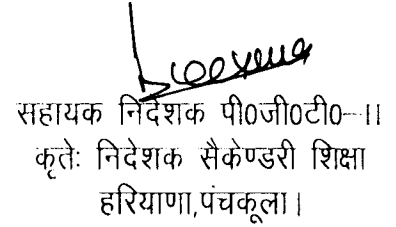 सहायक निदेशक पी0जी0टी0-।।
कृतेः निदेशक सैकेण्डरी शिक्षा
हरियाणा,पंचकूला।